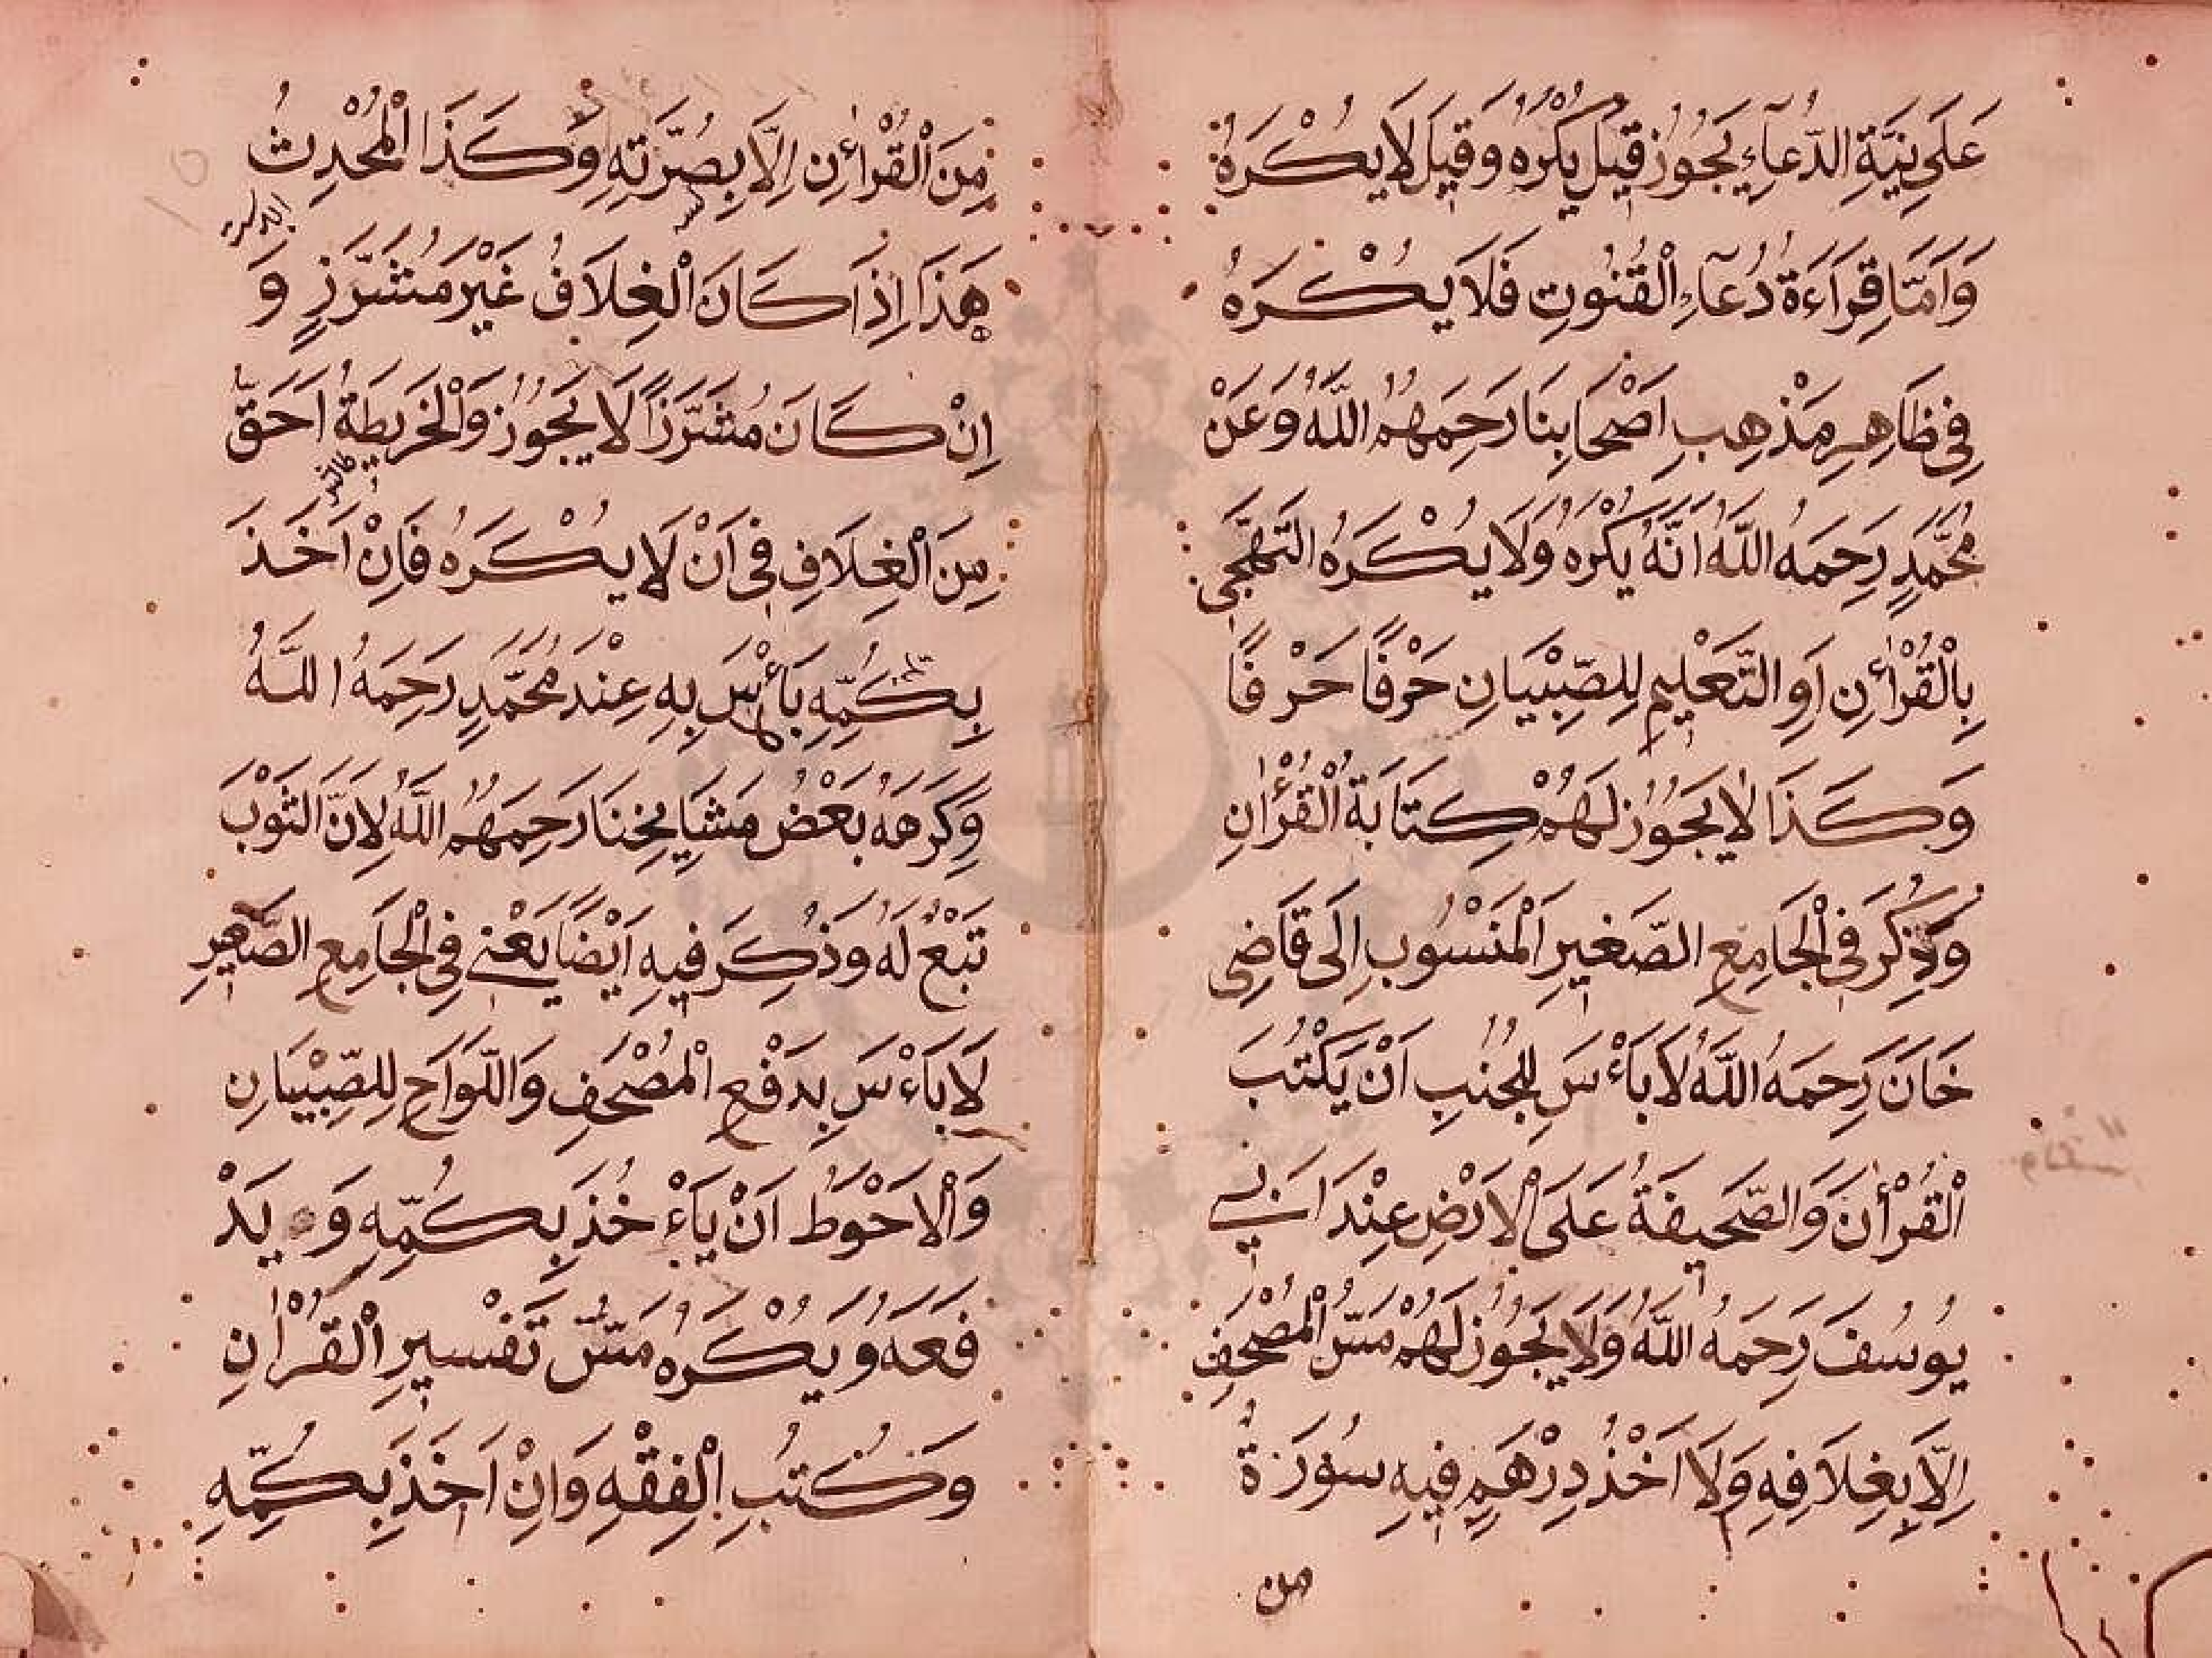 عَلَى نِيَّةِ الدُّعَآءِ يَجُوزُ قِيلَ يُكْرَهُ وَقِيلَ لَا يُكْرَهُ
وَاَمَّا قِرَاءَةُ دُعَآءِ الْقُنُوتِ فَلَا يُكْرَهُ
فِى ظَاهِرِ مَذْهِبِ اَصْحَابِنَا رَحِمَهُمُ اللّٰهُ وَعَنْ
مُحَمَّدٍ رَحِمَهُ اللّٰهُ اَنَّهُ يُكْرَهُ وَلَا يُكْرَهُ التَّهَجِّى
بِالْقُرْاٰنِ اَوِ التَّعْلِيمِ لِلصِّبْيَانِ حَرْفًا حَرْفًا
وَكَذَا لَا يَجُوزُ لَهُمْ كِتَابَةُ الْقُرْاٰنِ
وَذُكِرَ فِى الْجَامِعِ الصَّغِيرِ الْمَنْسُوبِ اِلَى قَاضِى
خَانَ رَحِمَهُ اللّٰهُ لَا بَاْءسَ لِلْجُنُبِ اَنْ يَكْتُبَ
الْقُرْاٰنَ وَالصَّحِيفَةُ عَلَى الْاَرْضِ عِنْدَ اَبِى
يُوسُفَ رَحِمَهُ اللّٰهُ وَلَا يَجُوزُ لَهُمْ مَسُّ الْمُصْحَفِ
اِلَّا بِغِلَافِهِ وَلَا اَخْذُ دِرْهَمٍ فِيهِ سُورَةٌ
من
مِنَ الْقُرْاٰنِ اِلَّا بِصُرَّتِهِ وَكَذَا الْمُحْدِثُ
هَذَا اِذَا كَانَ الْغِلَافُ غَيْرَ مُشَرَّزٍ وَ
اِنْ كَانَ مُشَرَّزًا لَا يَجُوزُ وَالْخَرِيطَةُ اَحَقُّ
مِنَ الْغِلَافِ فِى اَنْ لَا يُكْرَهُ فَاِنْ اَخَذَ
بِكُمِّهِ بَأْسَ بِهِ عِنْدَ مُحَمَّدٍ رَحِمَهُ اللّٰهُ
وَكَرِهَهُ بَعْضُ مَشَايِخِنَا رَحِمَهُمُ اللّٰهُ لِاَنَّ الثَّوْبَ
تَبَعٌ لَهُ وَذُكِرَ فِيهِ اَيْضًا يَعْنِى فِى الْجَامِعِ الصَّغِيرِ
لَا بَاْءسَ بِدَفْعِ الْمُصْحَفِ وَاللَّوَاحِ لِلصِّبْيَانِ
وَالْاَحْوَطُ اَنْ يَاْءخُذَ بِكُمِّهِ وَ يَدْ
فَعَهُ وَيُكْرَهُ مَسُّ تَفْسِيرِ الْقُرْاٰنِ
وَكُتُبِ الْفِقْهِ وَاِنْ اَخَذَ بِكُمِّهِ